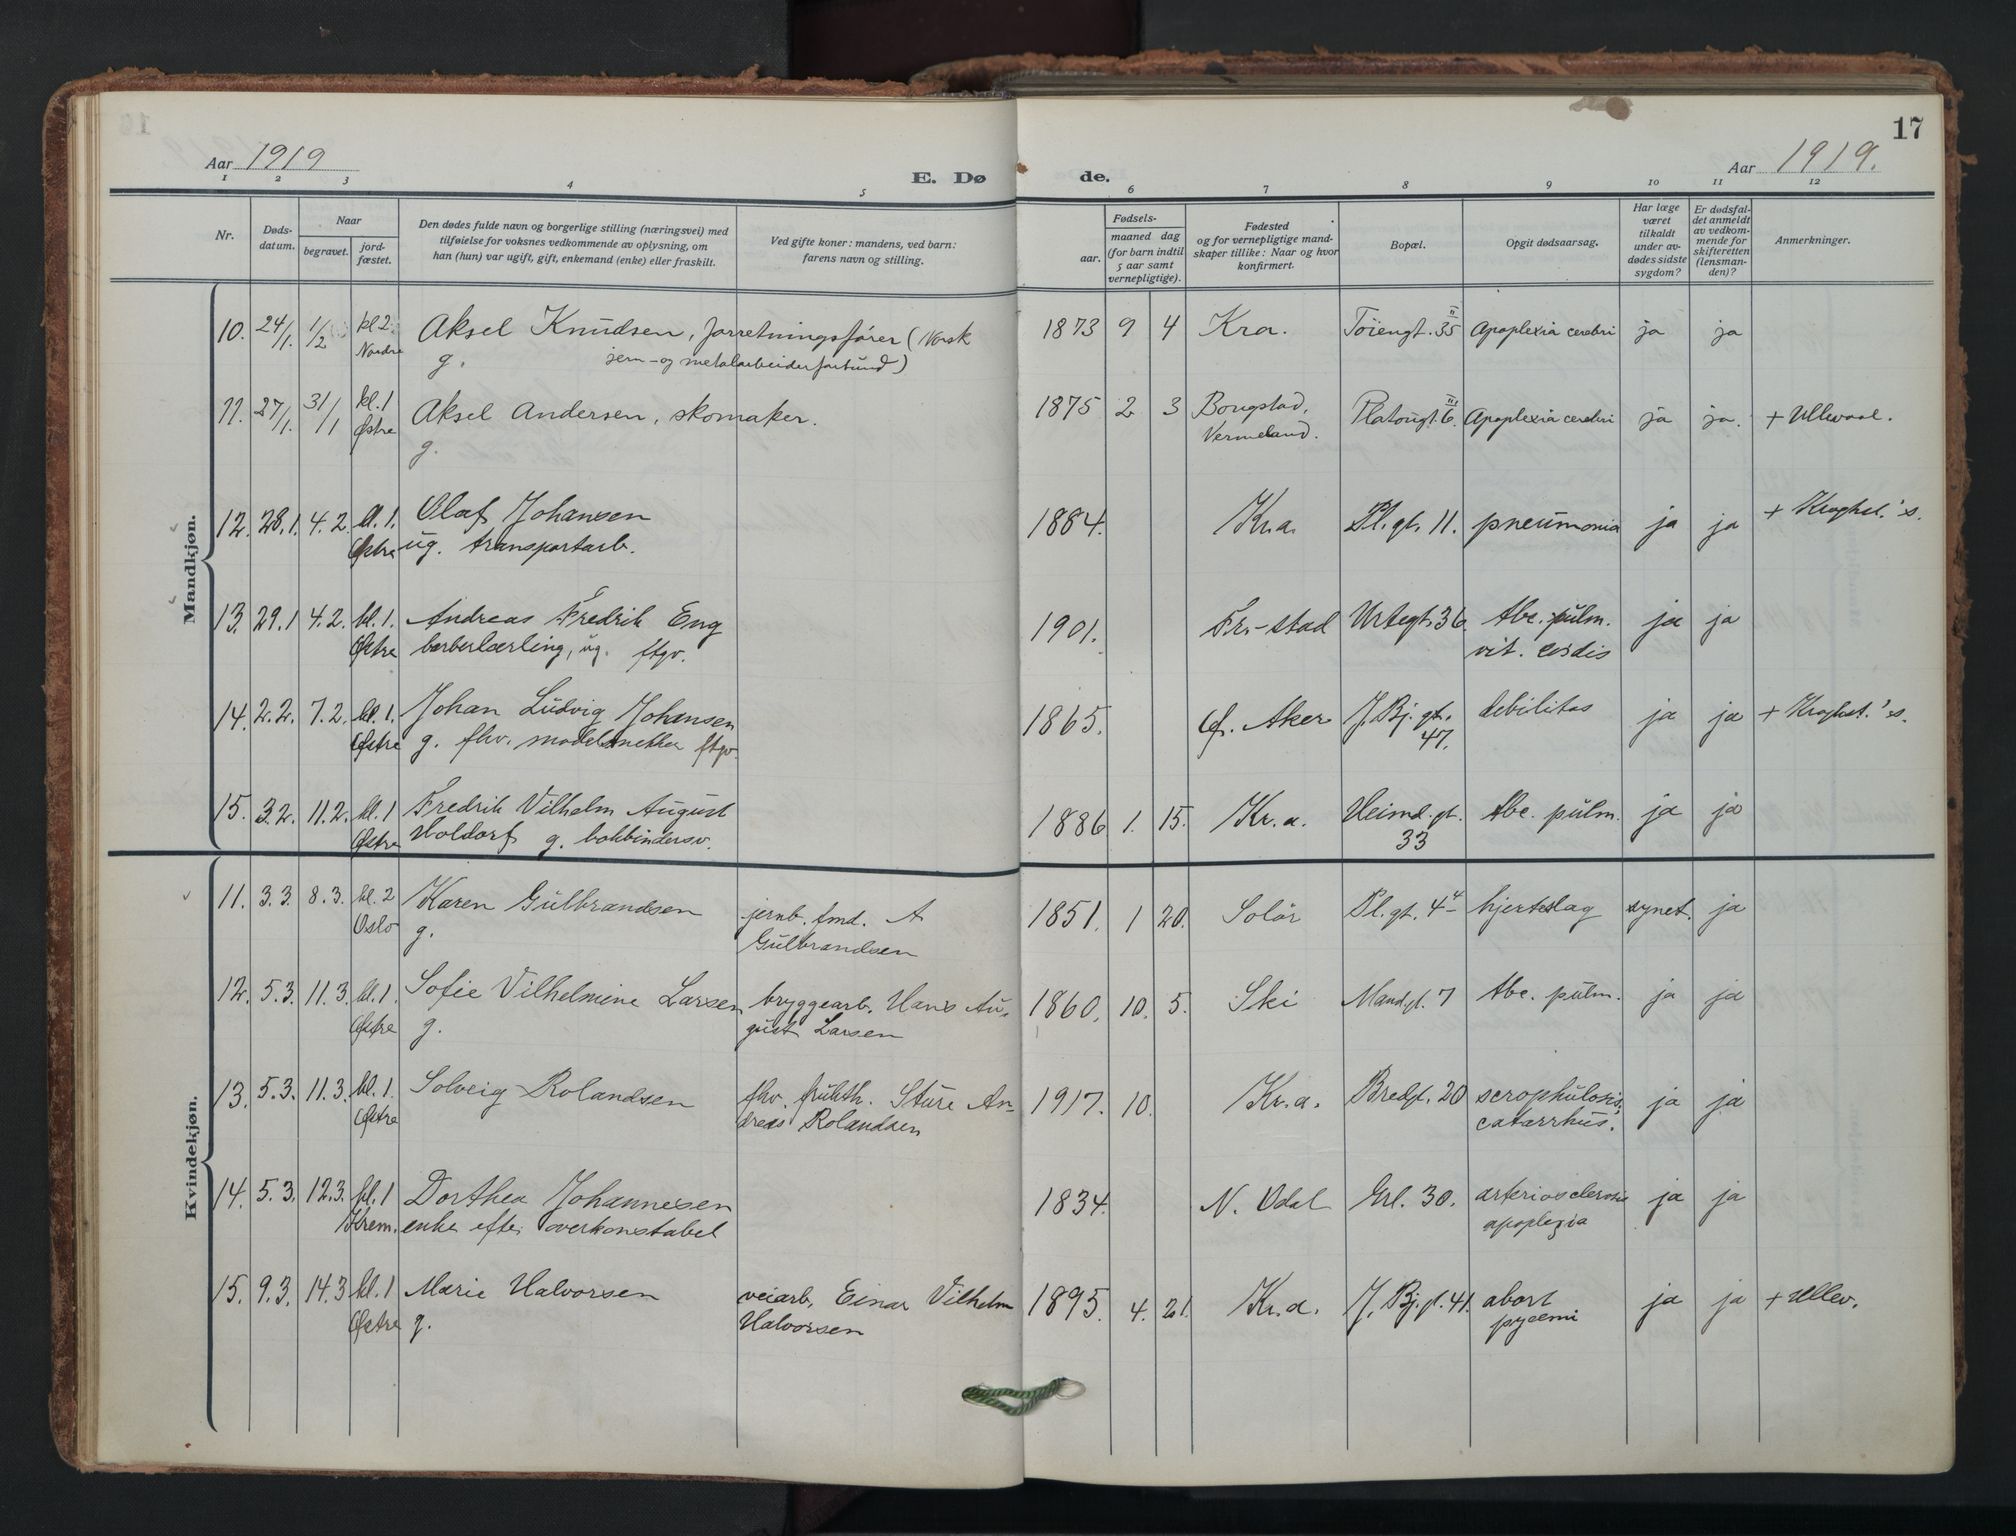 17
Aar 1919
E. Døde.
Aar 1919.
1 2 3 4 5 6 7 8 9 10 11 12
Nr.
Døds-
datum.
Naar
begravet.
jord-
fæstet.
Den dødes fulde navn og borgerlige stilling (næringsvei) med
tilføielse for voksnes vedkommende av oplysning, om
han (hun) var ugift, gift, enkemand (enke) eller fraskilt.
Ved gifte koner: mandens, ved barn:
farens navn og stilling.
Fødsels-
aar.
maaned dag
(for barn indtil
5 aar samt
vernepligtige).
Fødested
og for vernepligtige mand-
skaper tillike: Naar og hvor
konfirmert.
Bopæl.
Opgit dødsaarsag.
Har læge
været
tilkaldt
under av-
dødes sidste
sygdom?
Er dødsfal-
det anmeldt
av vedkom-
mende for
skifteretten
(lensman-
den)?
Anmerkninger.
Mandkjøn.
10. 24/1. 1/2 kl 2. Aksel Knudsen, forretningsfører (Norsk 1873 9 4 Kra. Töiengt. 35 II Apoplexia cerebri ja ja
Nordre g. jern- og metalarbeiderforbund)
11. 27/1. 31/1 kl. 1 Aksel Andersen, skomaker. 1875 2 3 Bougstad, Platougt. 6. III Apoplexia cerebri ja ja. + Ullevaal.
Østre g. Vermeland.
12. 28.1. 4.2. kl. 1. Olaf Johansen 1884. Kr.a. Pl.gt. 11. pneumonia ja ja + Kroghst.'s.
Østre ug. transportarb.
13. 29.1 4.2. kl. 1. Andreas Fredrik Eng 1901. Fr-stad Urtegt. 36. tbc. pulm. ja ja
Østre barberlærling, ug. ftgv. vit. cordis
14. 2.2. 7.2. kl. 1. Johan Ludvig Johansen 1865. Ø. Aker J. Bj. gt. debilitas ja ja + Kroghst.'s.
Østre g. fhv. modelsnekker ftgv. 47.
15. 3.2. 11.2. kl. 1 Fredrik Vilhelm August 1886 1. 15. Kr.a. Heimd.gt. tbc. pulm. ja ja
Østre Holdorf g. bokbindersv. 33
Kvindekjøn.
11. 3.3. 8.3. kl. 2 Karen Gulbrandsen jernb. fmd. A 1851. 1 20. Solör Pl.gt. 4 4 hjerteslag synet. ja
Oslo g. Gulbrandsen
12. 5.3. 11.3. kl. 1. Sofie Vilhelmine Larsen bryggearb. Hans Au- 1860. 10. 5. Ski Mand.gt. 7 tbc. pulm. ja ja
Østre g. gust Larsen
13. 5.3. 11.3. kl. 1. Solveig Rolandsen fhv. frukth. Sture An- 1917. 10. Kr.a. Bredgt. 20 scrophulosis, ja ja
Østre dreas Rolandsen catarrhus.
14. 5.3. 12.3. kl. 1 Dorthea Johannesen 1834. N. Odal Grl. 30. arteriosclerosis ja ja
Krem. enke efter overkonstabel apoplexia
15. 9.3. 14.3 kl. 1 Marie Halvorsen veiarb. Einar Vilhelm 1895. 4. 21. Kr.a. J. Bj.gt. 41. abort ja ja + Ullev.
Østre g. Halvorsen pyæmi